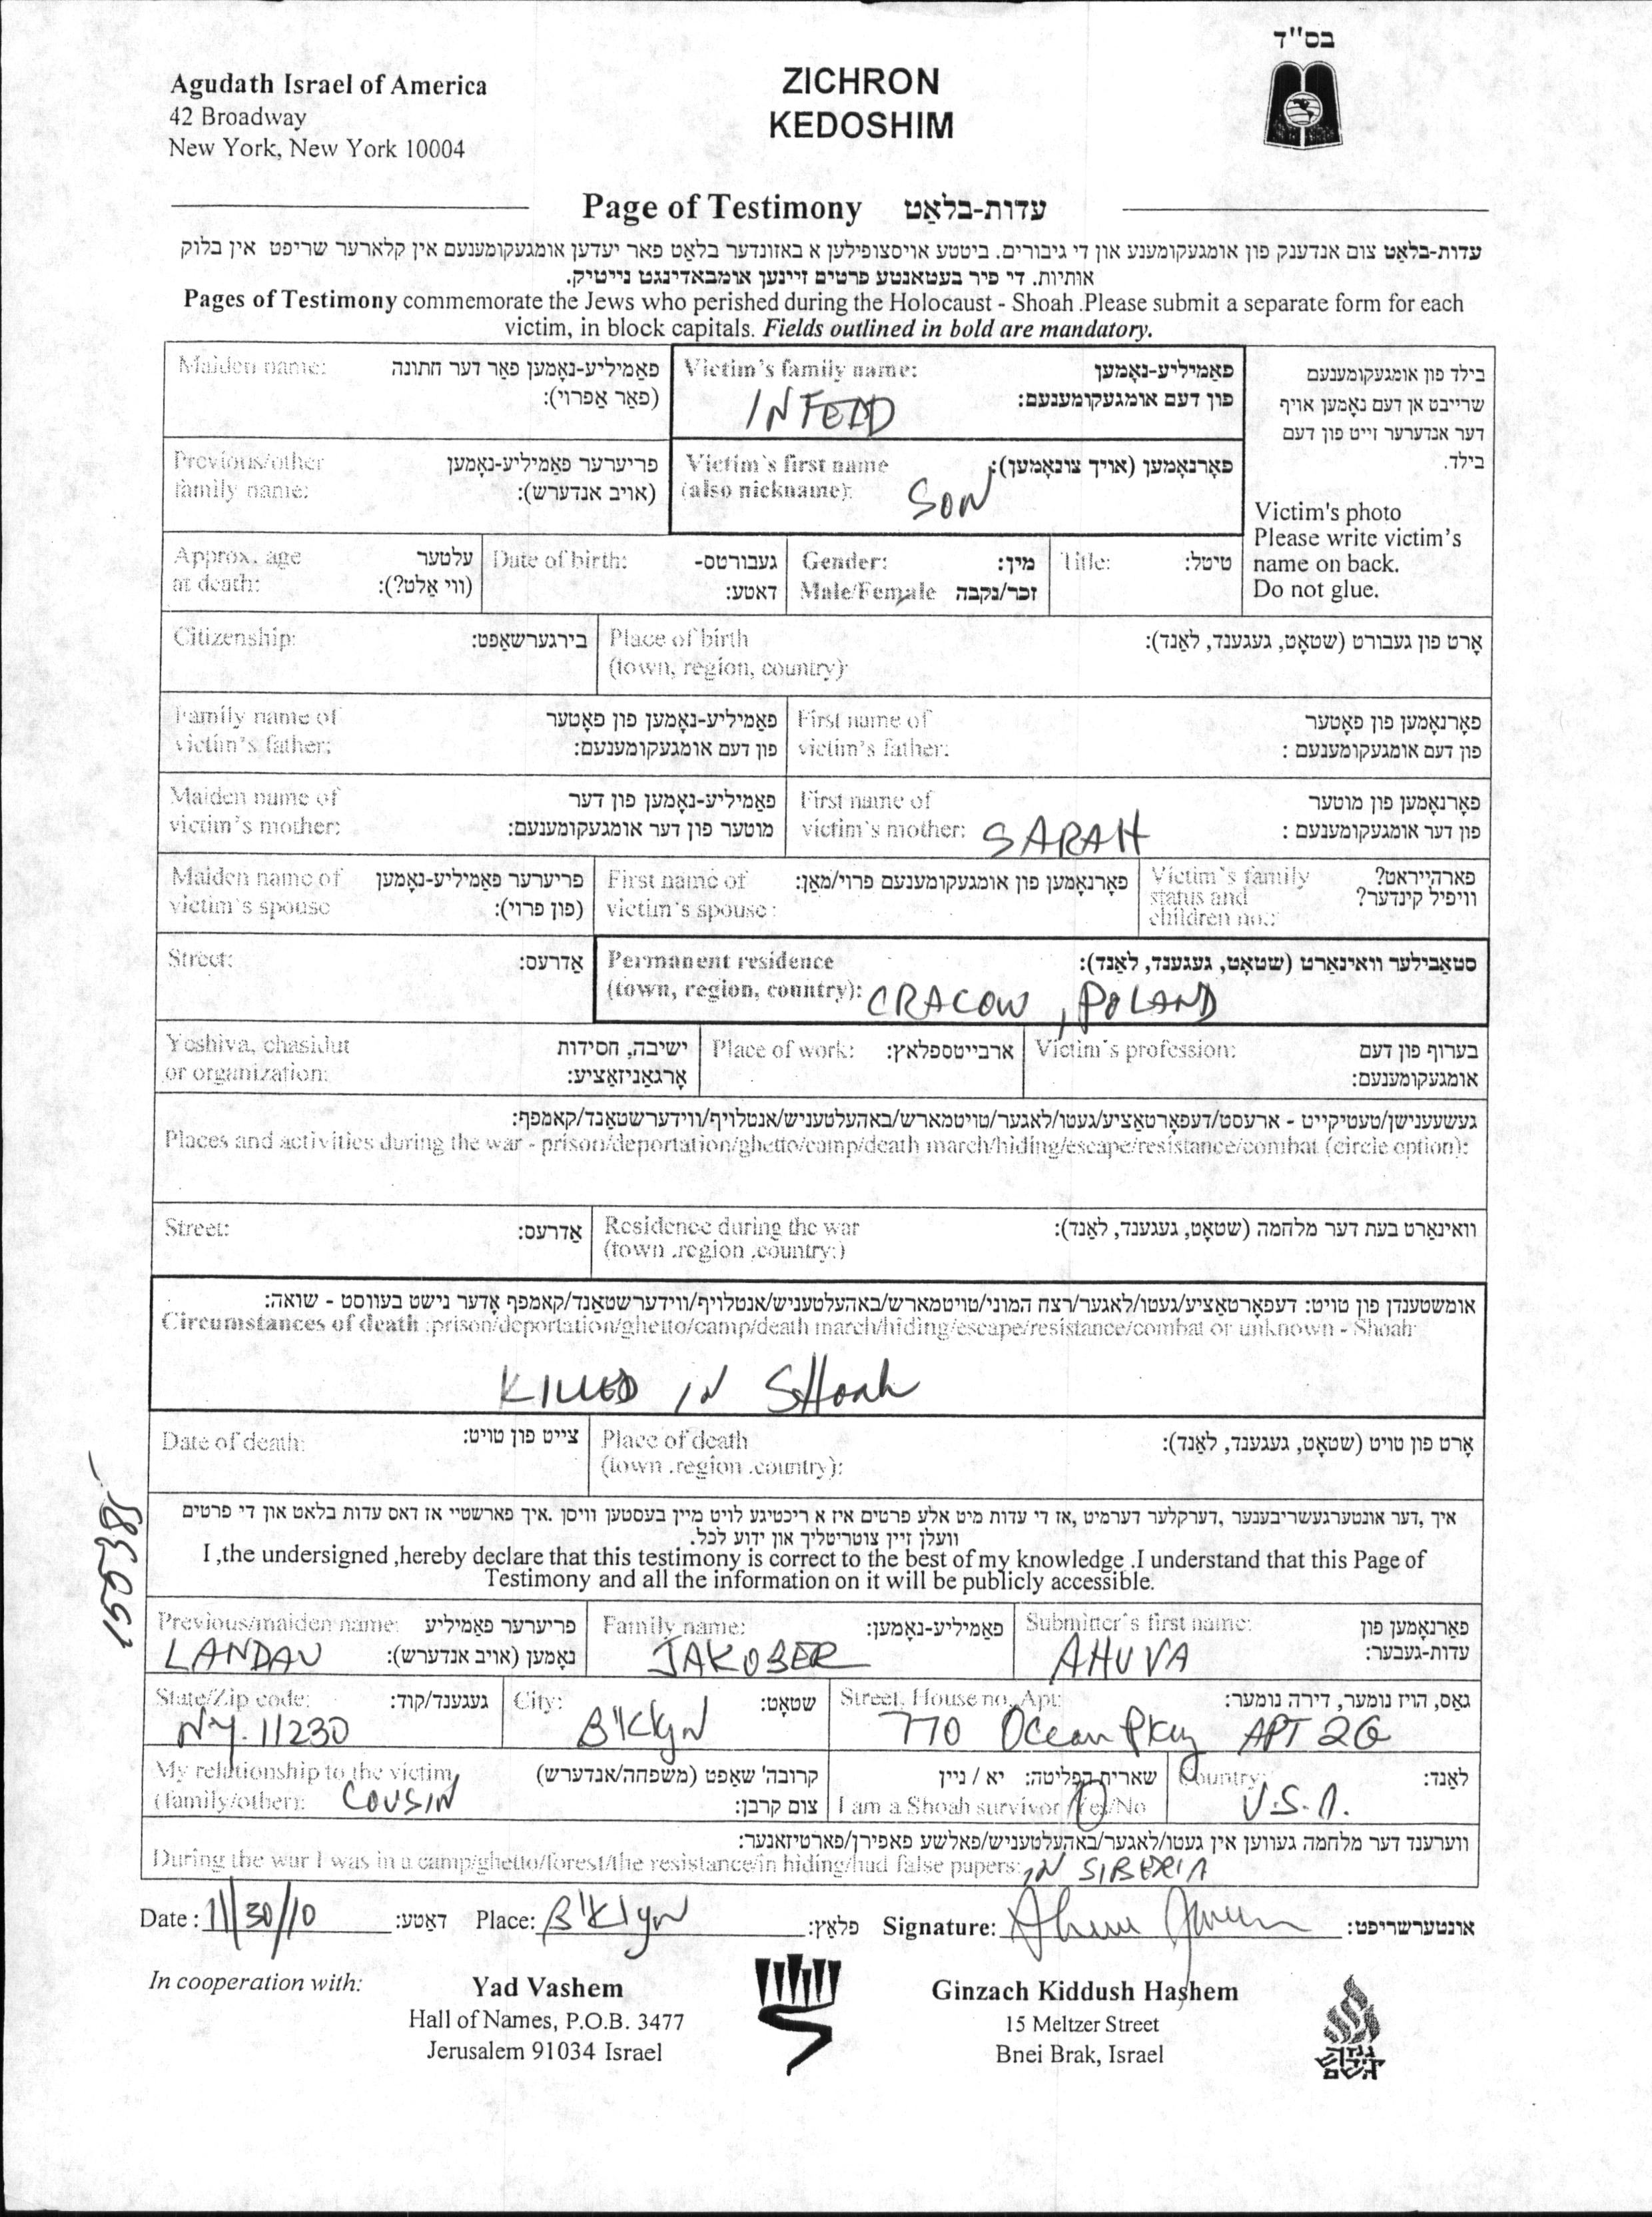 בס"ד
Agudath Israel of America
42 Broadway
New York, New York 10004
ZICHRON
KEDOSHIM
Page of Testimony עדות-בלאַט
עדות-בלאַט צום אנדענק פון אומגעקומענע און די גיבורים. ביטטע אויסצופילען א באזונדער בלאַט פאר יעדען אומגעקומענעם אין קלארער שריפט אין בלוק
אותיות. די פיר בעטאנטע פרטים זיינען אומבאדינגט נייטיק.
Pages of Testimony commemorate the Jews who perished during the Holocaust - Shoah .Please submit a separate form for each
victim, in block capitals. Fields outlined in bold are mandatory.
Maiden name: פאַמיליע-נאָמען פאַר דער חתונה
(פאַר אַפרוי):
Victim's family name: פאַמיליע-נאָמען
פון דעם אומגעקומענעם:
INFELD
Previous/other פריערער פאַמיליע-נאָמען
family name: (אויב אנדערש):
Victim's first name פאָרנאָמען (אויך צונאָמען):
(also nickname): SON
בילד פון אומגעקומענעם
שרייבט אן דעם נאָמען אויף
דער אנדערער זייט פון דעם
בילד.
Victim's photo
Please write victim's
name on back.
Do not glue.
Approx. age עלטער
at death: (ווי אַלט?):
Date of birth: געבורטס-
דאטע:
Gender: מין:
Male/Female זכר/נקבה
Title: טיטל:
Citizenship: בירגערשאַפט:
Place of birth אָרט פון געבורט (שטאָט, געגענד, לאַנד):
(town, region, country)
Family name of פאַמיליע-נאָמען פון פאָטער
victim's father: פון דעם אומגעקומענעם:
First name of פאָרנאָמען פון פאָטער
victim's father: פון דעם אומגעקומענעם :
Maiden name of פאַמיליע-נאָמען פון דער
victim's mother: מוטער פון דער אומגעקומענעם:
First name of פאָרנאָמען פון מוטער
victim's mother: SARAH פון דער אומגעקומענעם :
Maiden name of פריערער פאַמיליע-נאָמען
victim's spouse (פון פרוי):
First name of פאָרנאָמען פון אומגעקומענעם פרוי/מאַן:
victim's spouse :
Victim's family פארהייראט?
status and וויפיל קינדער?
children no.:
Street: אַדרעס:
Permanent residence סטאַבילער וואינאַרט (שטאָט, געגענד, לאַנד):
(town, region, country): CRACOW, POLAND
Yeshiva, chasidut ישיבה, חסידות
or organization: אָרגאַניזאַציע:
Place of work: ארבייטספלאץ:
Victim's profession: בערוף פון דעם
אומגעקומענעם:
געשעענישן/טעטיקייט - ארעסט/דעפאָרטאַציע/געטו/לאגער/טויטמארש/באהעלטעניש/אנטלויף/ווידערשטאַנד/קאמפף:
Places and activities during the war - prison/deportation/ghetto/camp/death march/hiding/escape/resistance/combat (circle option):
Street: אַדרעס:
Residence during the war וואינאַרט בעת דער מלחמה (שטאָט, געגענד, לאַנד):
(town .region .country:)
אומשטענדן פון טויט: דעפאָרטאַציע/געטו/לאגער/רצח המוני/טויטמארש/באהעלטעניש/אנטלויף/ווידערשטאַנד/קאמפף אָדער נישט בעוווסט - שואה:
Circumstances of death :prison/deportation/ghetto/camp/death march/hiding/escape/resistance/combat or unknown - Shoah
KILLED IN SHoah
Date of death: צייט פון טויט:
Place of death אָרט פון טויט (שטאָט, געגענד, לאַנד):
(town .region .country):
איך ,דער אונטערגעשריבענער ,דערקלער דערמיט ,אז די עדות מיט אלע פרטים איז א ריכטיגע לויט מיין בעסטען וויסן .איך פארשטיי אז דאס עדות בלאט און די פרטים
וועלן זיין צוטריטליך און ידוע לכל.
I ,the undersigned ,hereby declare that this testimony is correct to the best of my knowledge .I understand that this Page of
Testimony and all the information on it will be publicly accessible.
Previous/maiden name: פריערער פאַמיליע
LANDAU נאָמען (אויב אנדערש):
Family name: פאַמיליע-נאָמען:
JAKOBER
Submitter's first name: פאָרנאָמען פון
AHUVA עדות-געבער:
State/Zip code: געגענד/קוד:
NY. 11230
City: שטאָט:
B'klyn
Street, House no, Apt: גאַס, הויז נומער, דירה נומער:
770 Ocean Pkwy APT 2G
My relationship to the victim קרובה' שאַפט (משפחה/אנדערש)
(family/other): COUSIN צום קרבן:
שארית הפליטה: יא / ניין
I am a Shoah survivor Yes/No
Country: לאַנד:
U.S.A.
ווערענד דער מלחמה געווען אין געטו/לאגער/באהעלטעניש/פאלשע פאפירן/פארטיזאנער:
During the war I was in a camp/ghetto/forest/the resistance/in hiding/had false papers: IN SIBERIA
Date : 11/30/10 דאַטע: Place: B'klyn פלאַץ: Signature: אונטערשריפט:
150398
In cooperation with:
Yad Vashem
Hall of Names, P.O.B. 3477
Jerusalem 91034 Israel
Ginzach Kiddush Hashem
15 Meltzer Street
Bnei Brak, Israel
גנזך
קידוש
השם